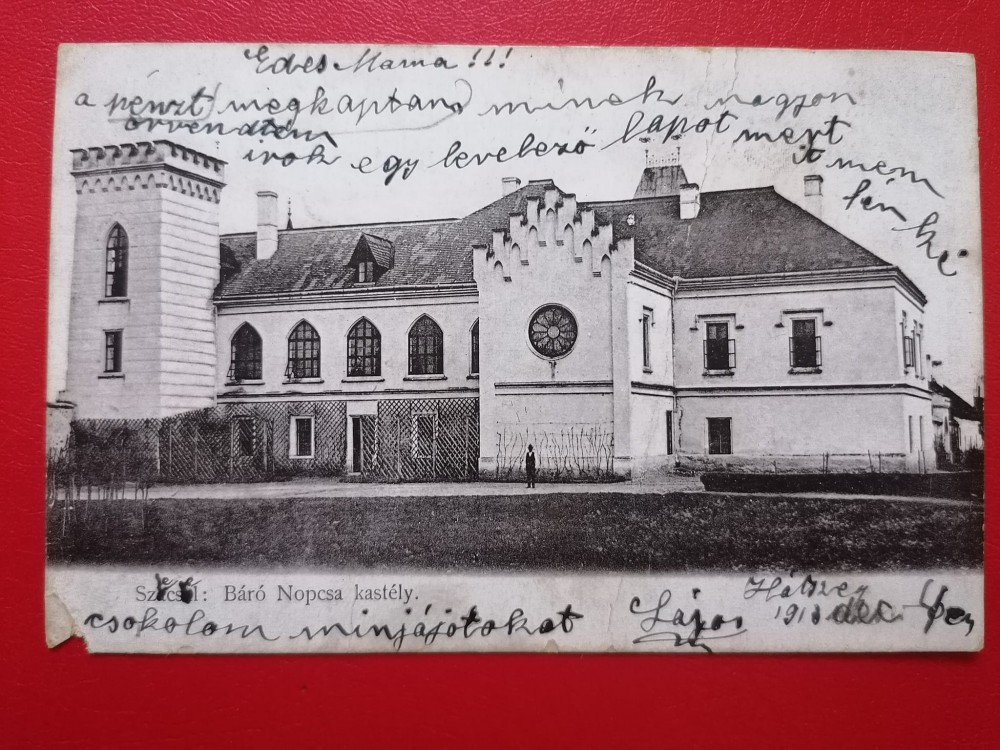 Edes Mama!!!
a penzt megkaptam minek nagyon
örvendtem
irok egy levelező lapot mert
it mem
fén ké
Szacsal: Báró Nopcsa kastély.
csokolom minjájótokat Lajos
Hátszeg
191 dec